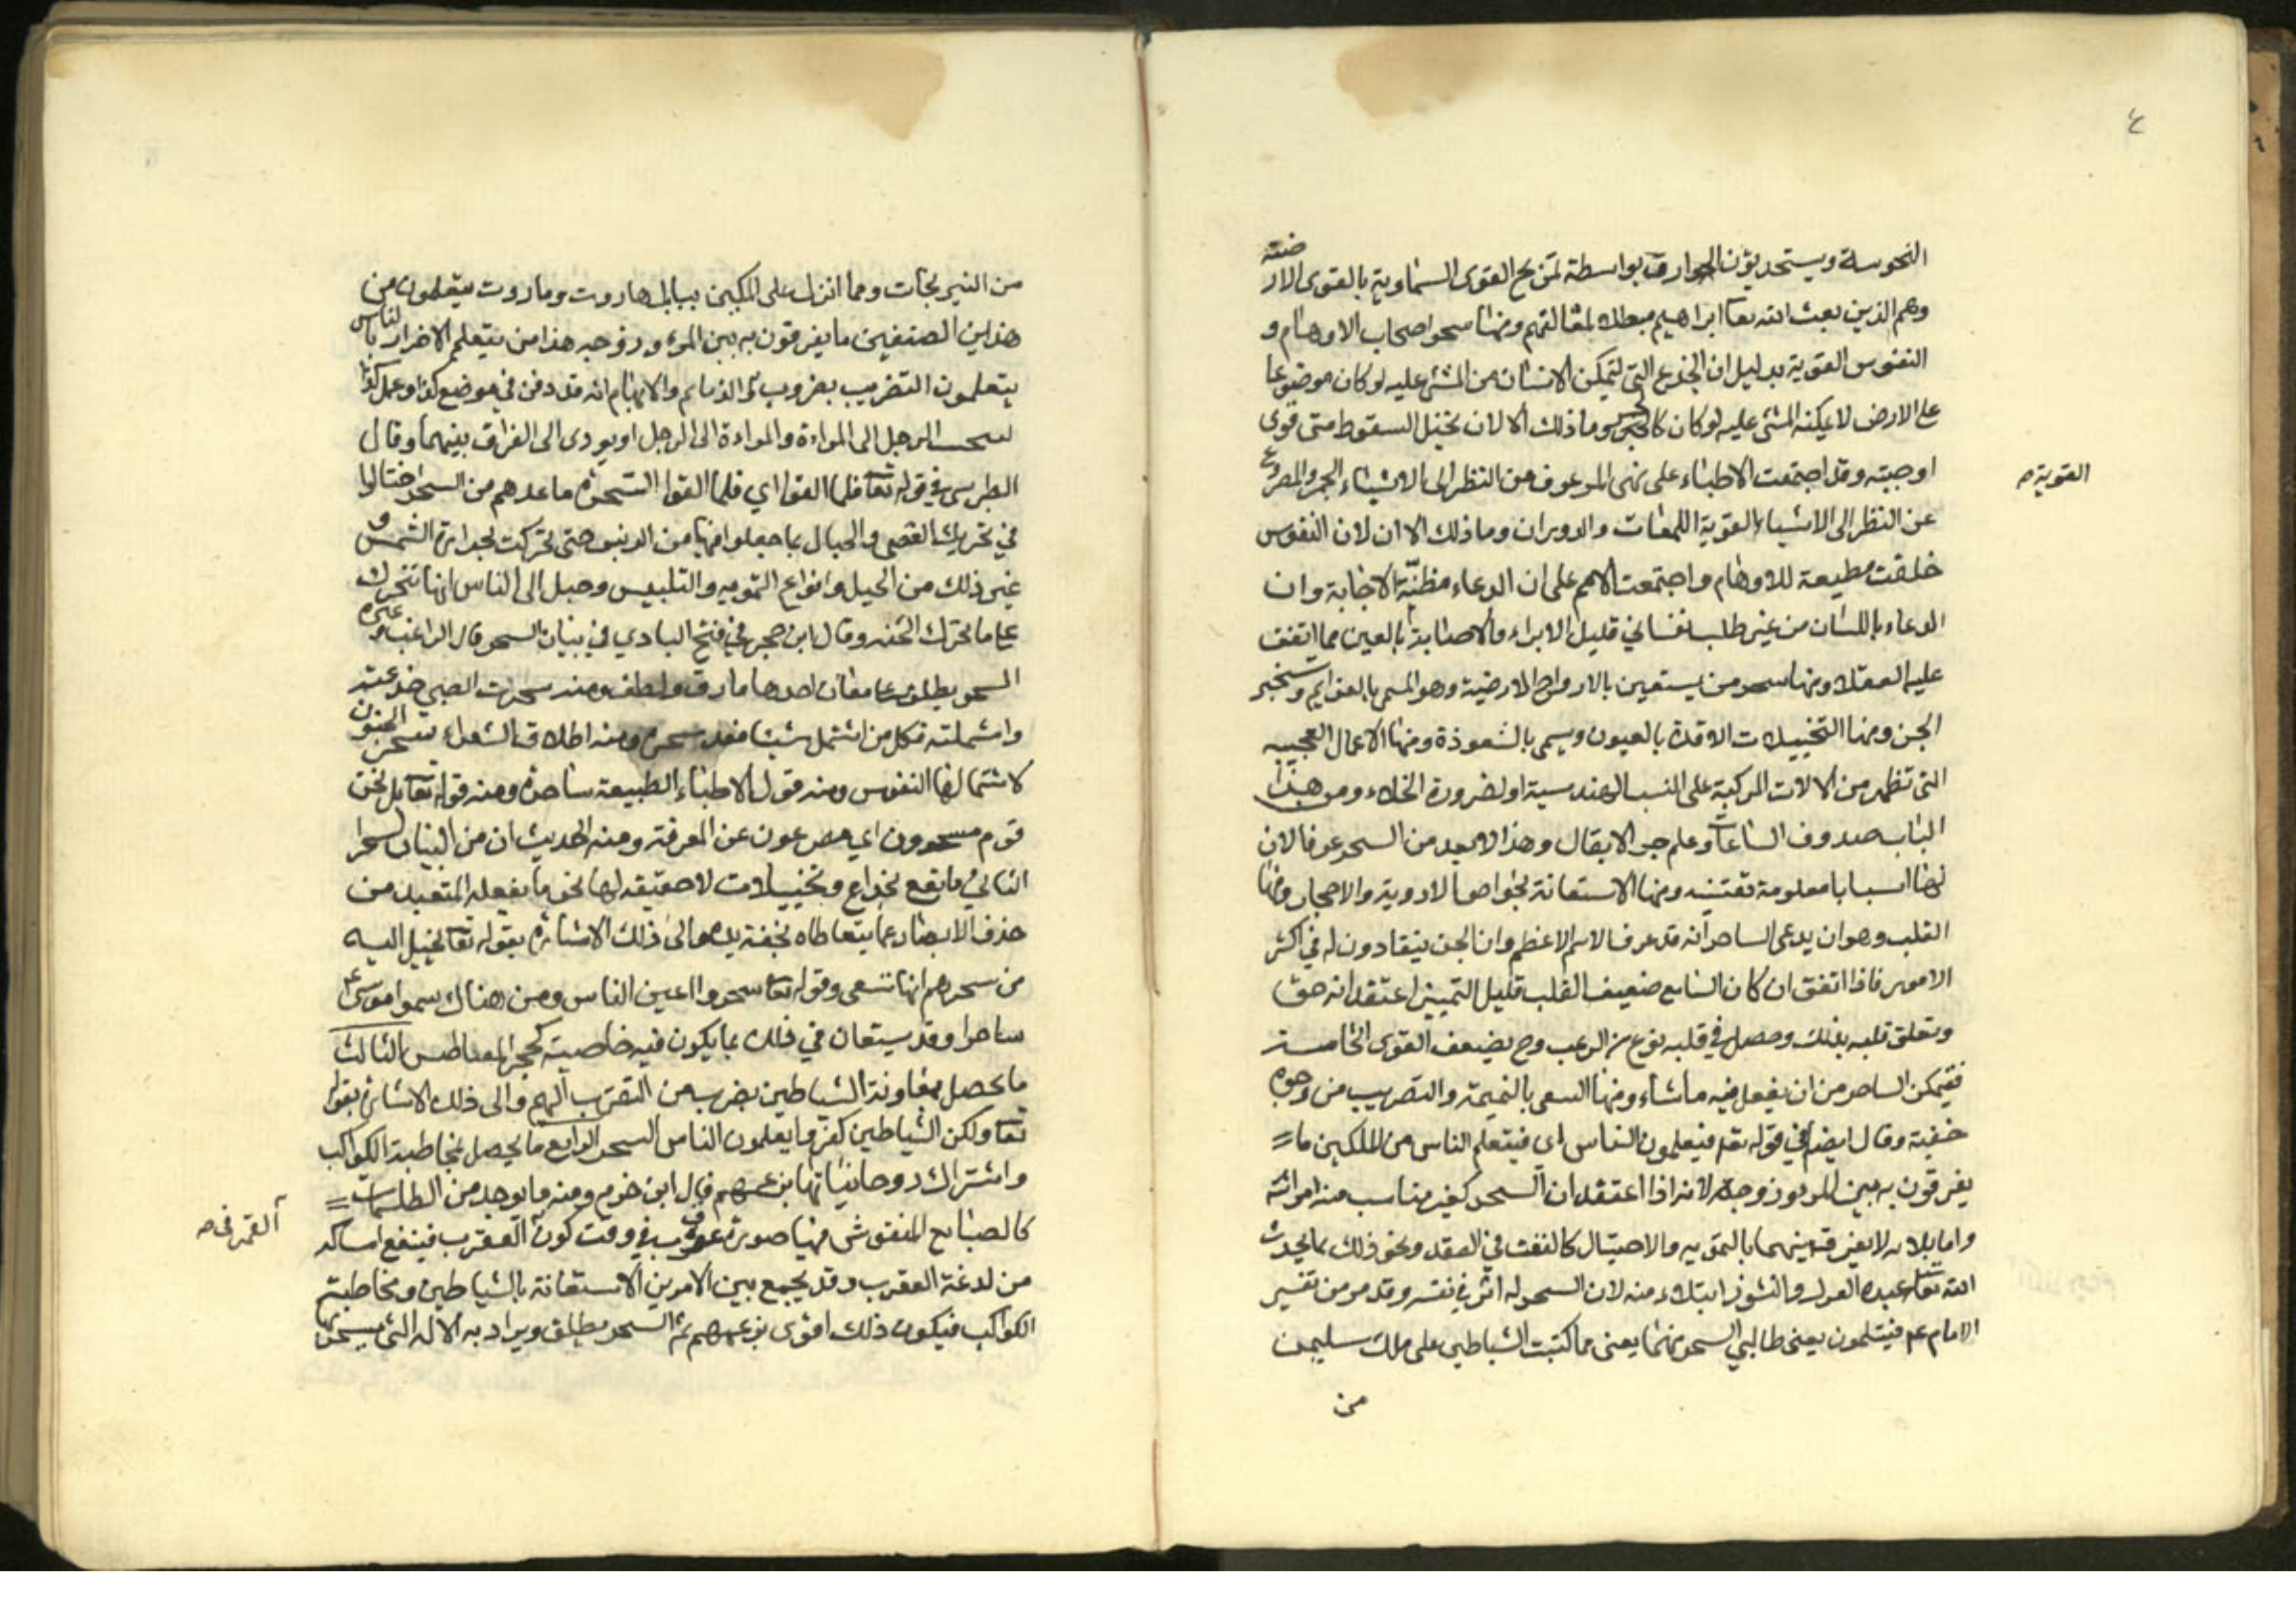 ٤
النحوسة ويستحدثون الخوارق بواسطة تمزيج القوى السماوية بالقوى الارضية
وهم الذين بعث الله تعا ابراهيم مبطلا لمقالتهم ومنها سحر اصحاب الاوهام و
النفوس القوية بدليل ان الجذع التي يتمكن الانسان من المشي عليه لو كان موضوعا
على الارض لا يمكنه المشي عليه لو كان كالجسر وما ذلك الا لان تخيل السقوط متى قوى
اوجبته وقد اجتمعت الاطباء على نهى المرعوف من النظر الى الاشياء الحمر والمصروع
القوية
عن النظر الى الاشياء القوية اللمعات والدوران وما ذلك الا ان لان النفوس
خلقت مطيعة للاوهام واجتمعت الامم على ان الدعاء مظنة الاجابة وان
الدعاء باللسان من غير طلب نفساني قليل الاثر والاصابة بالعين مما اتفق
عليه العقلا ومنها سحر من يستعين بالارواح الارضية وهو المسمى بالعزايم وتسخير
الجن ومنها التخييلات الاخذة بالعيون ويسمى بالشعوذة ومنها الاعمال العجيبه
التي تظهر من الالات المركبة على النسب الهندسية او لضرورة الخلاء ومن هذا
الباب صدوف الساعات وعلم جر الاثقال وهذا لا يعد من السحر عرفا لان
لها اسبابا معلومة تفتنه ومنها الاستعانة بخواص الادوية والاحجار ومنها
القلب وهو ان يدعى الساحر انه قد عرف الاسم الاعظم وان الجن ينقادون له في اكثر
الامور فاذا اتفق ان كان السامع ضعيف القلب قليل التمييز اعتقد انه حق
وتعلق قلبه بذلك وحصل في قلبه نوع من الرعب وح يضعف القوى الحاسة
فيتمكن الساحر من ان يفعل فيه ما شاء ومنها السعى بالنميمة والتضريب من وجوه
خفية وقال ايضا في قوله تعا فيتعلمون الناس اى فيتعلم الناس من الملكين ما
يفرقون به بين المرء وزوجه لانه اذا اعتقد ان السحر كفر بانت منه امراته
واما بلا به لا يفرق بينهما بالتمويه والاحتيال كالنفث في العقد ونحو ذلك مما يحدث
الله تعا عنده الفرك والنشوز ابتلاء منه لان السحر له اثر في نفسه وقد مر من تفسير
الامام عم فيتعلمون يعنى طالبي السحر منهما يعنى مما كتبت الشياطين على ملك سليمن
من
من النيرنجات ومما انزل على الملكين ببابل هاروت وماروت يتعلمون من
هذين الصنفين ما يفرقون به بين المرء وزوجه هذا من يتعلم الاضرار بالناس
يتعلمون التضريب بضروب والنمايم والايهام انه قد دفن في موضع كذا وعمل كذا
ليحبب الرجل الى المراة والمراة الى الرجل او يودى الى الفراق بينهما وقال
الطبرسى في قوله تعا فلما القوا اي فلما القوا السحرة ما عندهم من السحر احتالوا
في تحريك العصى والحبال بما جعلوا فيها من الزيبق حتى تحركت بحرارة الشمس و
غير ذلك من الحيل وانواع التمويه والتلبيس وخيل الى الناس انها تتحرك
على ما تحرك الحية وقال ابن حجر في فتح البادي في بيان السحر قال الراغب وغيره
السحر يطلق على معان احدها ما رق ولطف ومنه سحرت الصبي خدعته
واستملته فكل من استمل شيئا فقد سحره ومنه اطلاق الشعراء سحر العيون
لاستمالتها النفوس ومنه قول الاطباء الطبيعة ساحرة ومنه قوله تعا بل نحن
قوم مسحورون اي مصرعون عن المعرفة ومنه الحديث ان من البيان لسحرا
الثاني ما يقع بخداع وتخييلات لا حقيقه لها نحو ما يفعله المتعبد من
حذف الابصار عما يتعاطاه بخفة يده والى ذلك الاشارة بقوله تعا يخيل اليه
من سحرهم انها تسعى وقوله تعا سحروا اعين الناس ومن هناك سموا موسى ع
ساحرا وقد يستعان في ذلك بما يكون فيه خاصية كحجر المغناطيس الثالث
ما يحصل بمعاونة الشياطين بضرب من التقرب اليهم والى ذلك الاشارة بقوله
تعا ولكن الشياطين كفروا يعلمون الناس السحر الرابع ما يحصل بمخاطبة الكواكب
واستنزال روحانياتها بزعمهم قال ابن حزم ومنه ما يوجد من الطلسمات
كالطبايع المنقوش فيها صورة عقرب في وقت كون العقرب فينفع امساكه
القمر في
من لدغة العقرب وقد يجمع بين الامرين الاستعانة بالشياطين ومخاطبة
الكواكب فيكون ذلك اقوى بزعمهم ثم السحر يطلق ويراد به الالة التي يسحر بها